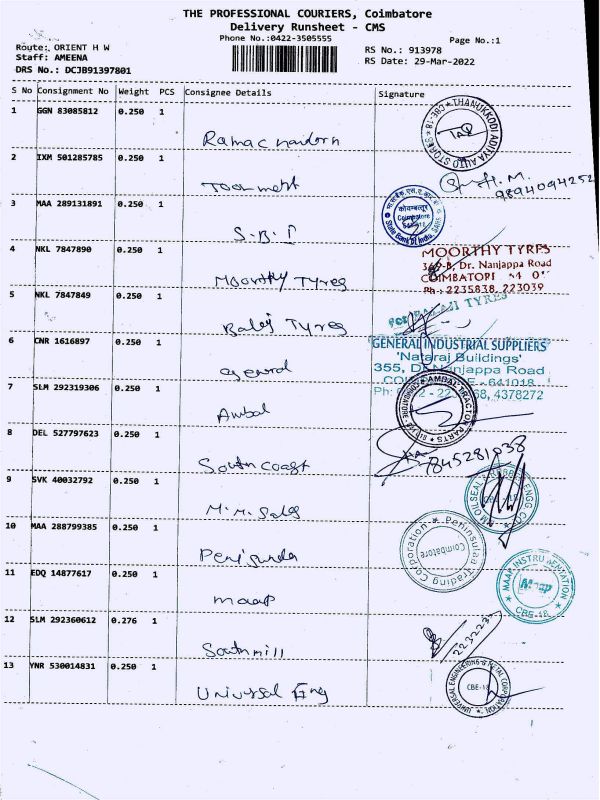 THE PROFESSIONAL COURIERS, Coimbatore
Delivery Runsheet - CMS
Phone No.:0422-3505555
Page No.:1
Route: ORIENT H W
Staff: AMEENA
DRS No.: DCJB91397801
RS No.: 913978
RS Date: 29-Mar-2022
S No Consignment No Weight PCS Consignee Details Signature
1 GGN 83085812 0.250 1
Ramachandorn
THANUKKODI ADITYA AUTO STORES CBE-18
2 IXM 501285785 0.250 1
9894094252
3 MAA 289131891 0.250 1
S.B.I
कोयम्बत्तूर
Coimbatore
State Bank of India
4 NKL 7847890 0.250 1
Moorthy Tyres
MOORTHY TYRES
369-B, Dr. Nanjappa Road
Ph: 2235838, 223039
5 NKL 7847849 0.250 1
Balaj Tyres
TYRES
6 CNR 1616897 0.250 1
GENERAL INDUSTRIAL SUPPLIERS
'Nataraj Buildings'
355, Dr. Nanjappa Road
641018
4378272
7 SLM 292319306 0.250 1
Ambal
AMBAL TRACTOR PARTS COIMBATORE
8 DEL 527797623 0.250 1
South Coast
7845281038
9 SVK 40032792 0.250 1
M.M. Sales
10 MAA 288799385 0.250 1
Peninsula Trading Corporation
Coimbatore
11 EDQ 14877617 0.250 1
maap
MAAP INSTRUMENTATION
Maap
CBE-18
12 SLM 292360612 0.276 1
South mill
13 YNR 530014831 0.250 1
Universal Eng
UNIVERSAL ENGINEERING & METAL CORPORATION
CBE-18